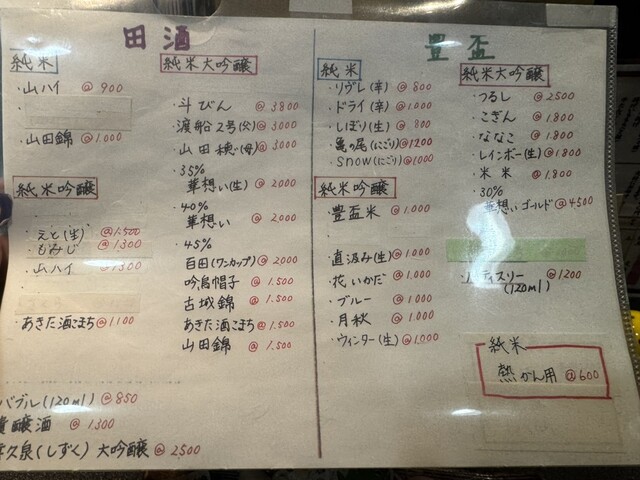 田酒
純米
・山ハイ @900
・山田錦 @1.000
純米吟醸
・えと(生) @1.500
・もみじ @1300
・山ハイ @1300
・あきた酒こまち @1100
バブル(120ml) @850
貴醸酒 @1300
久泉(しずく)大吟醸 @2,500
純米大吟醸
・斗びん @3800
・渡船2号(父) @3000
・山田穂(母) @3000
・35%
華想い(生) @2000
・40%
華想い @2000
・45%
百田(ワンカップ) @2000
吟烏帽子 @1.500
古城錦 @1.500
あきた酒こまち @1.500
山田錦 @1.500
豊盃
純米
・リヴレ(辛) @800
・ドライ(辛) @1.000
・しぼり(生) @800
・亀の尾(にごり) @1200
・SNOW(にごり) @1000
純米吟醸
・豊盃米 @1.000
・直汲み(生) @1.000
・花いかだ @1.000
・ブルー @1000
・月秋 @1.000
・ウィンター(生) @1.000
純米大吟醸
・つるし @2500
・こぎん @1.800
・ななこ @1.800
・レインボー(生) @1.800
・米米 @1.800
・30%
華想いゴールド @4500
ティスリー @1200
(120ml)
純米
熱かん用 @600